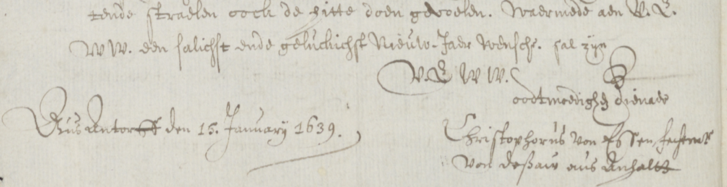 tende straelen oock de hitte doen gevoelen. Waermede aen U. E.
WW. een salichst ende geluckichst Nieuw-Jaer wensche. sal zyn
U E WW.
oodtmoedighe dienaer
Aus Antorff den 15. January 1639.
Christophorus von
von Deßaw aus Anhaltt